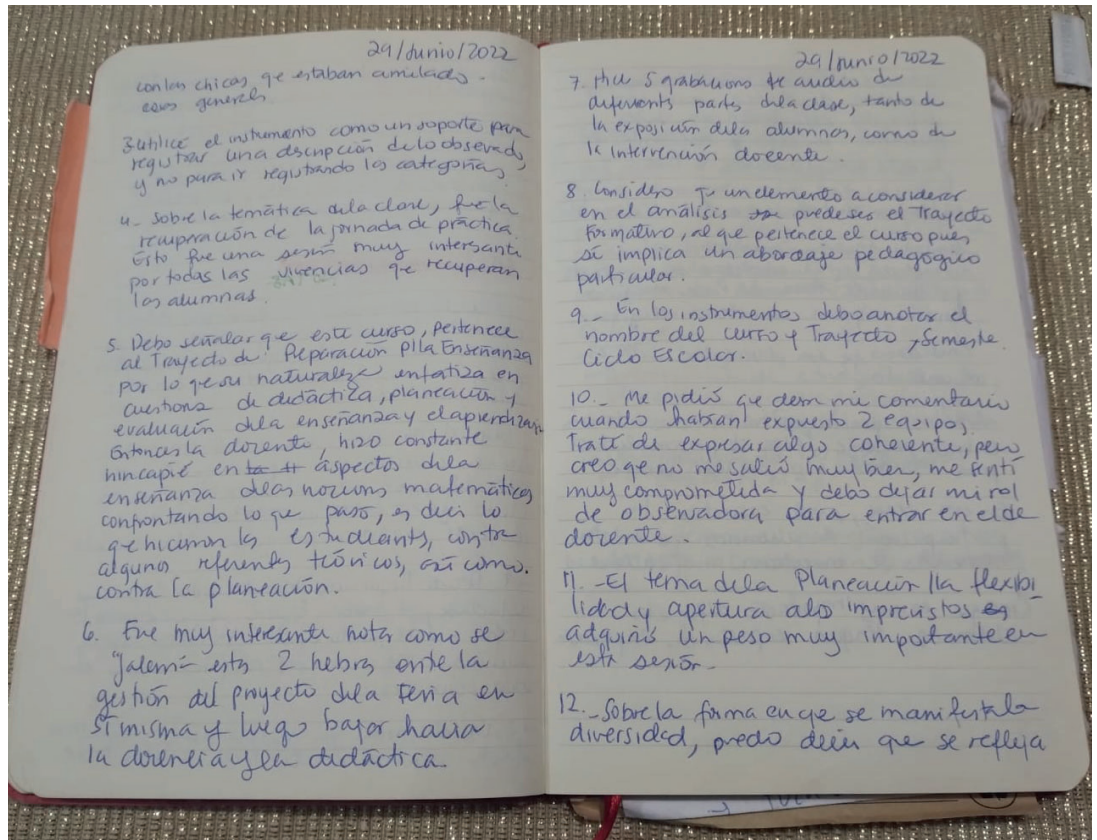 29/Junio/2022
con las chicas qe estaban
3 utilicé el instrumento como un soporte para
registrar una descripción de lo observado,
y no para ir registrando las categorías.
4.- Sobre la temática de la clase, fue la
recuperación de la jornada de práctica.
Esto fue una sesión muy interesante
por todas las vivencias qe recuperan
las alumnas.
5. Debo señalar qe este curso, pertenece
al Trayecto de Preparación p/la Enseñanza
por lo qe su naturaleza enfatiza en
cuestiones de didáctica, planeación y
evaluación de la enseñanza y el aprendizaje
Entonces la docente, hizo constante
hincapié en aspectos de la
enseñanza de las nociones matemáticas
confrontando lo qe pasó, es decir lo
qe hicieron los estudiantes, contra
algunos referentes teóricos, así como.
contra la planeación.
6. Fue muy interesante notar como se
estas 2 hebras entre la
gestión del proyecto de la feria en
sí misma y luego bajar hacia
la docencia y la didáctica.
29/Junio/2022
7. Hice 5 grabaciones de audio de
diferentes partes de la clase, tanto de
la exposición de la alumnas, como de
la intervención docente.
8. Considero qe un elemento a considerar
en el análisis puede ser el Trayecto
Formativo, al que pertenece el curso pues
sí implica un abordaje pedagógico
particular.
9.- En los instrumentos debo anotar el
nombre del curso y Trayecto, Semestre
Ciclo Escolar.
10.- Me pidió qe dem mi comentario
cuando habían expuesto 2 equipos,
Traté de expresar algo coherente, pero
creo qe no me salió muy bien, me sentí
muy comprometida y debo dejar mi rol
de observadora para entrar en el de
docente.
11.- El tema de la Planeación /la flexibi
lidad y apertura a los imprevistos
adquirió un peso muy importante en
esta sesión.
12.- Sobre la forma en qe se manifiesta la
diversidad, puedo decir que se refleja